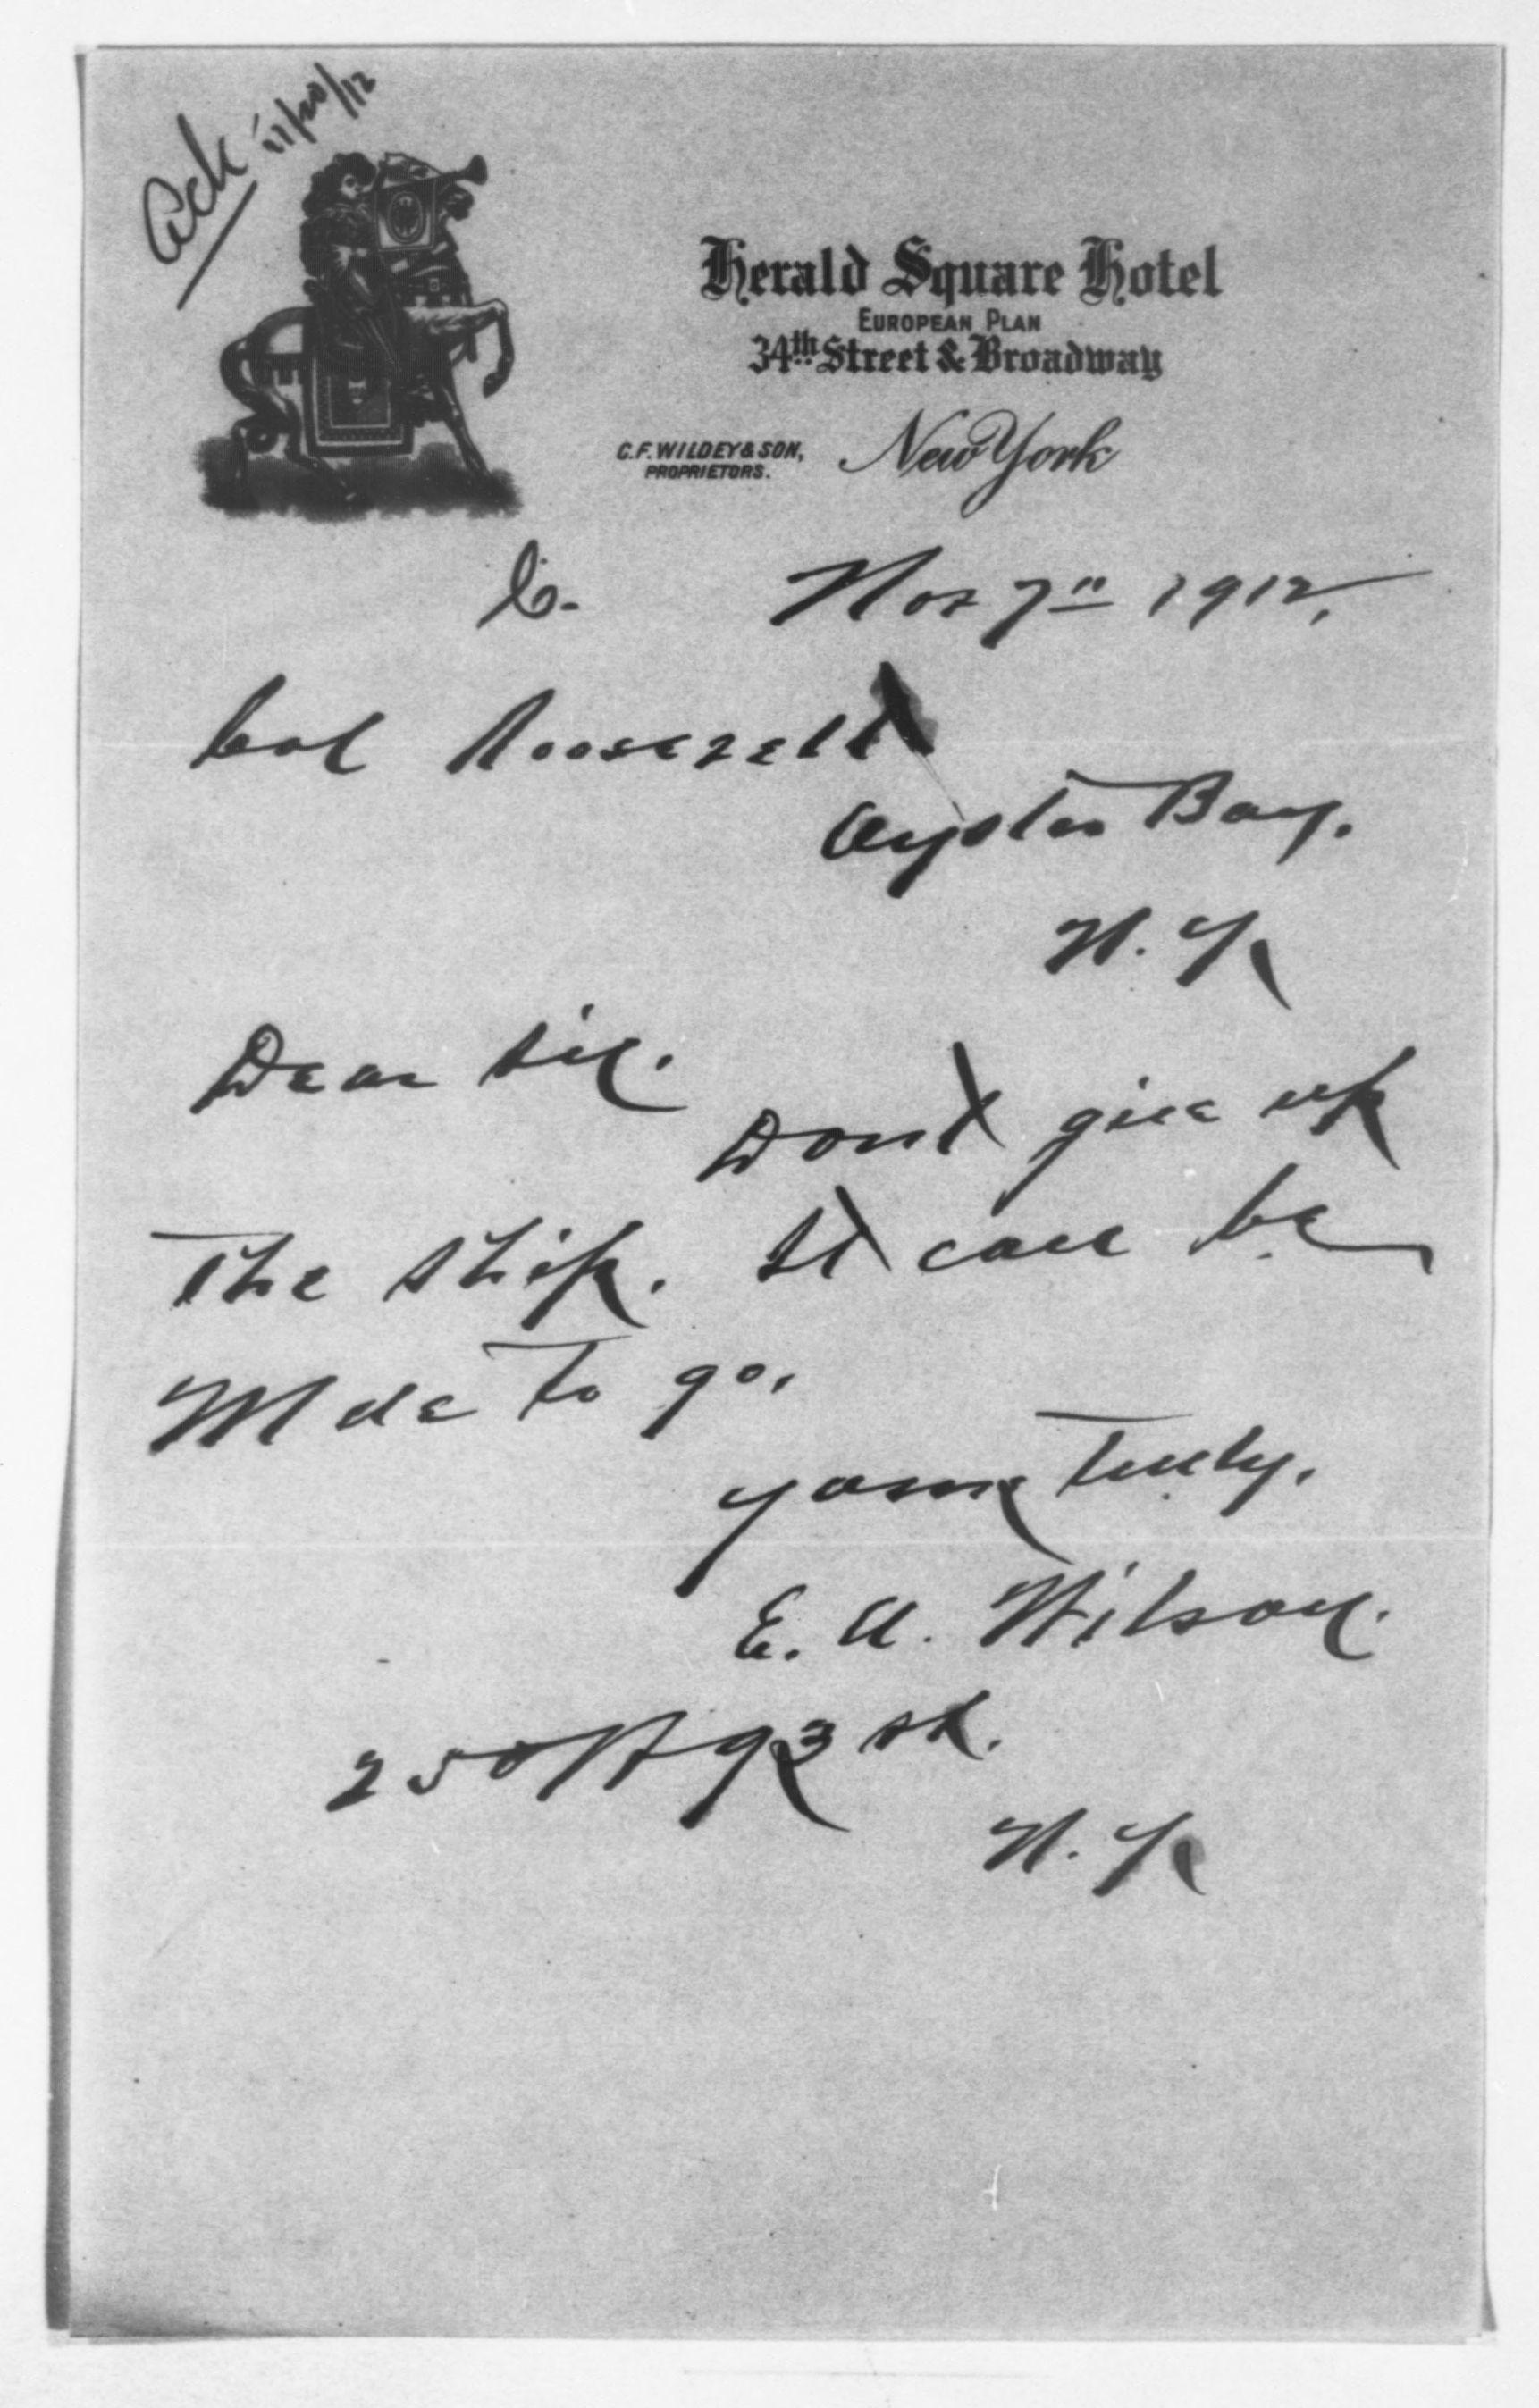 Ack 11/20/12
Herald Square Hotel
EUROPEAN PLAN
34th Street & Broadway
C.F. WILDEY & SON,
PROPRIETORS.
New York
C. Nov 7" 1912,
Col Roosevelt
Oyster Bay.
N.Y
Dear Sir.
Dont give up
The Ship. It can be
Mde to go.
yours Truly.
E. A. Wilson.
250 W 93 st.
N.Y